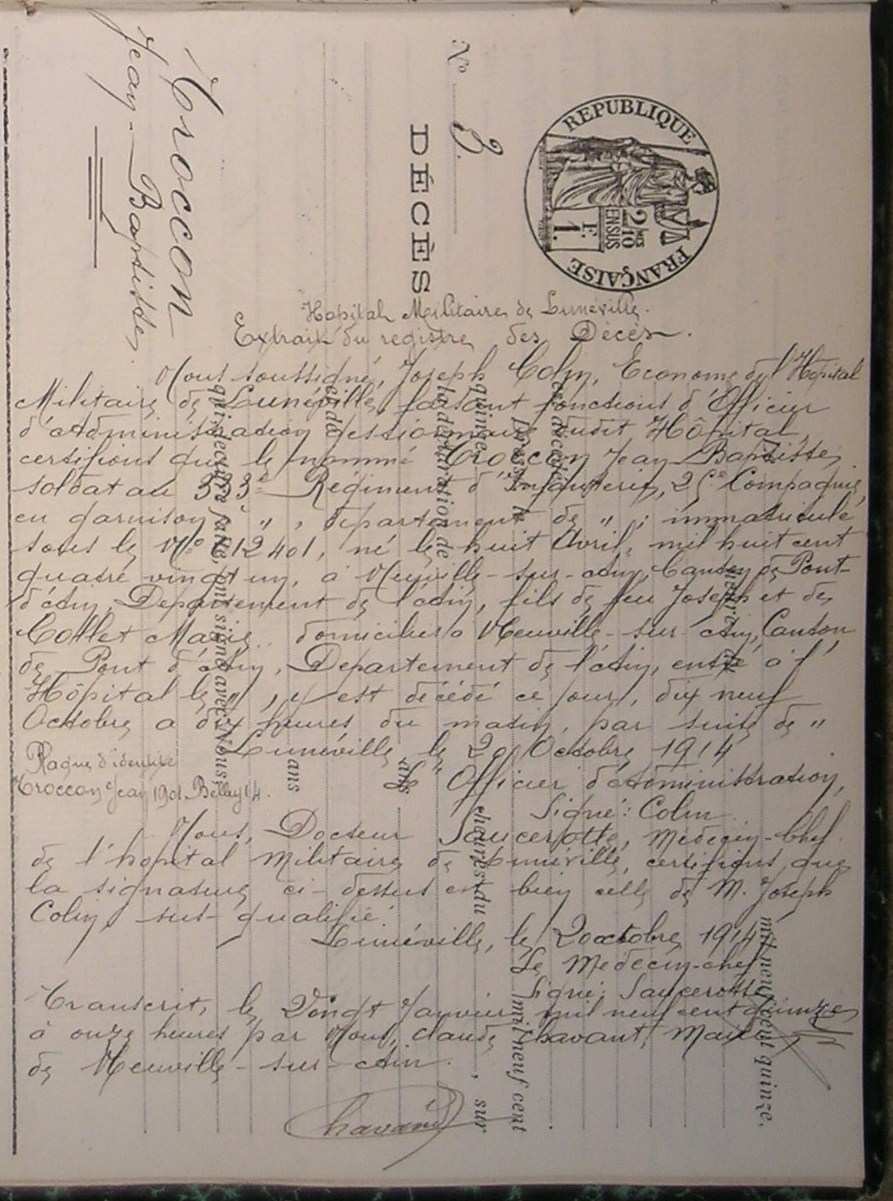 Croccon
Jean-Baptiste
N° 3.
DÉCÈS
REPUBLIQUE FRANÇAISE
2/10 EN SUS
1. F.
Hopital Militaire de Lunéville.
Extrait du registre des Décès.
Nous soussigné, Joseph Colin, Econome de l'Hopital
Militaire de Lunéville, faisant fonctions d'Officier
d'administration gestionnaire dudit Hôpital,
certifions que le nommé Croccon Jean Baptiste
soldat au 333e Régiment d'Infanterie, 25e Compagnie,
en garnison à ,, , département de ,, ; immatriculé
sous le No 12401, né le huit Avril, mil huit cent
quatre vingt un, à Neuville-sur-Ain, Canton de Pont-
d'Ain, Département de l'Ain, fils de feu Joseph et de
Collet Marie domicilié à Neuville-sur-Ain, Canton
de Pont d'Ain, Département de l'Ain, entré à l'
Hôpital le ,, , y est décédé ce jour, dix neuf
Octobre à dix heures du matin, par suite de ,,
Lunéville le 20 Octobre 1914
Plaque d'identité
Croccon Jean 1901 Belley 14.
L'Officier d'administration,
Signé: Colin
Nous, Docteur Saucerotte, Médecin-Chef
de l'hopital militaire de Lunéville, certifions que
la signature ci-dessus est bien celle de M. Joseph
Colin, sus-qualifié.
Lunéville, le 20 octobre 1914
Le Médecin-chef
Signé: Saucerotte
Transcrit, le Vingt Janvier mil neuf cent quinze
à onze heures par Nous, Claude Chavant, Maire
de Neuville-sur-Ain.
Chavant
mil neuf cent quinze,
heure
cès de
la déclaration de
ans
chargés du
mil neuf cent
, sur
et de
qui, lecture faite, ont signé avec Nous,